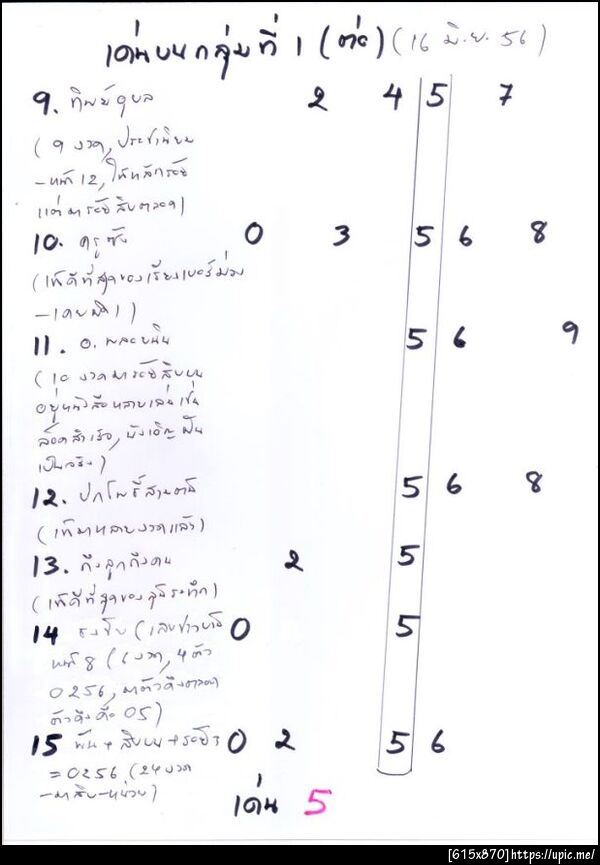 เด่นบนกลุ่มที่ 1 (ต่อ) (16 มิ.ย. 56)
9. ทิพย์อุบล 2 4 5 7
(9 งวด, ประชานิยม
-หน้า 12, ให้หลักร้อย
แต่มาร้อยสิบตลอด)
10. ครูซัง 0 3 5 6 8
(เท้ดีที่สุดของเรียงเบอร์ม่วง
11. อ. พลอยนิน 5 6 9
(10 งวดมาร้อยสิบบน
อยู่หนังสือหลายเล่มเช่น
ล็อคสำเร็จ, บังเอิญฝัน
เป็นจริง)
12. ปกโพธิ์สามตัว 5 6 8
(เท้มาหลายงวดแล้ว)
13. ถึงลูกถึงคน 2 5
14 0 5
หน้า 8 (6 งวด, 4 ตัว
0256, มาตัวดึงตลอด
ตัวดึงคือ 05)
15 พัน + สิบบน + ร้อย 0 2 5 6
=0256 (24 งวด
-มาสิบ-หน่วย)
เด่น 5
[615x870]https://upic.me/